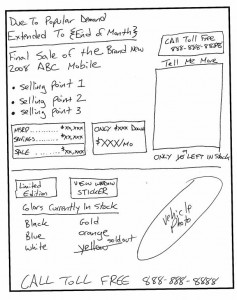 Due To Popular Demand
Extended To {End of Month}
Final Sale of the Brand New
2008 ABC Mobile
• Selling Point 1
• Selling Point 2
• Selling Point 3
CALL Toll Free
888-888-8888
Tell Me More
MSRP ......... $xx,xxx
SAVINGS ...... $xx,xxx
SALE ..... $xx,xxx
ONLY $xxx Down
$xxx/mo
ONLY 10 LEFT IN Stock
Limited
Edition
VIEW WINDOW
STICKER
Colors Currently In Stock
Black Gold
Blue orange
White yellow sold out
vehicle
Photo
CALL TOLL FREE 888-888-8888